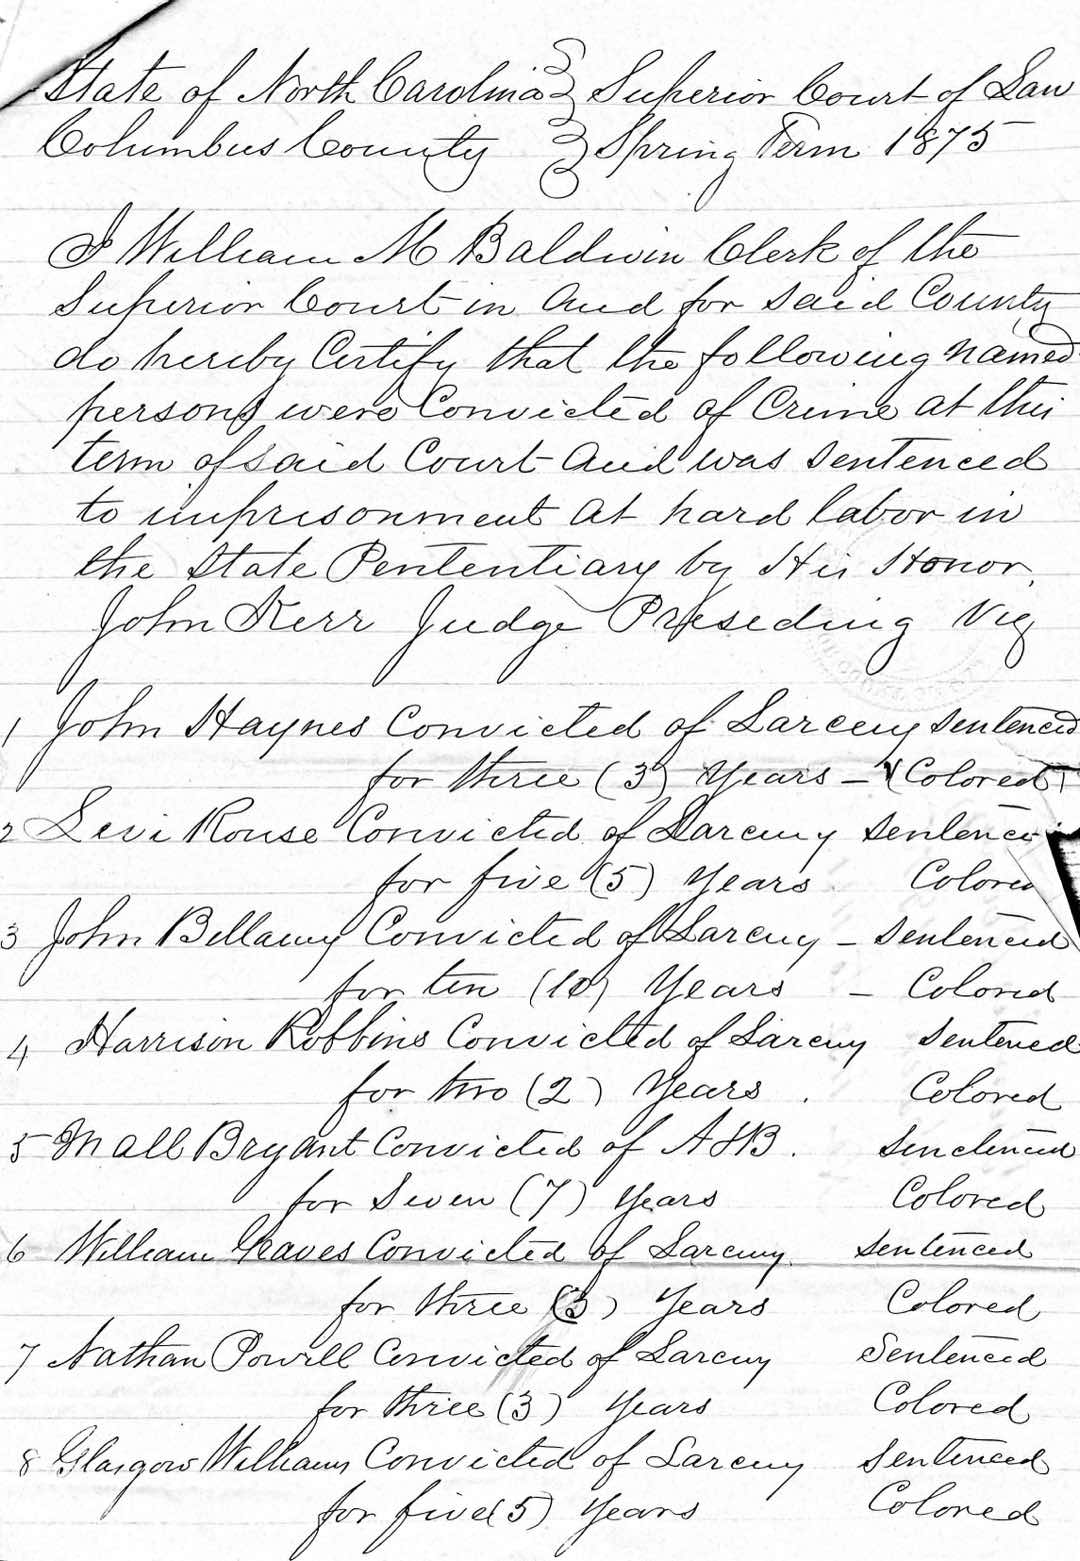 State of North Carolina } Superior Court of Law
Columbus County } Spring Term 1875
I William M Baldwin Clerk of the
Superior Court in and for said County
do hereby Certify that the following named
persons were Convicted of Crime at this
term of said Court and was sentenced
to imprisonment at hard labor in
the State Pententiary by His Honor,
John Kerr Judge Preseding Viz
1 John Haynes Convicted of Larceny sentenced
for three (3) Years – (Colored)
2 Levi Rouse Convicted of Larceny sentence
for five (5) Years Colored
3 John Bellamy Convicted of Larceny – sentenced
for ten (10) Years – Colored
4 Harrison Robbins Convicted of Larceny sentenced
for two (2) Years . Colored
5 Mall Bryant Convicted of A & B . sentenced
for Seven (7) Years Colored
6 William Graves Convicted of Larceny. sentenced
for three (3) Years Colored
7 Nathan Powell Convicted of Larceny Sentenced
for three (3) Years Colored
8 Glasgow Williams Convicted of Larceny sentenced
for five (5) Years Colored